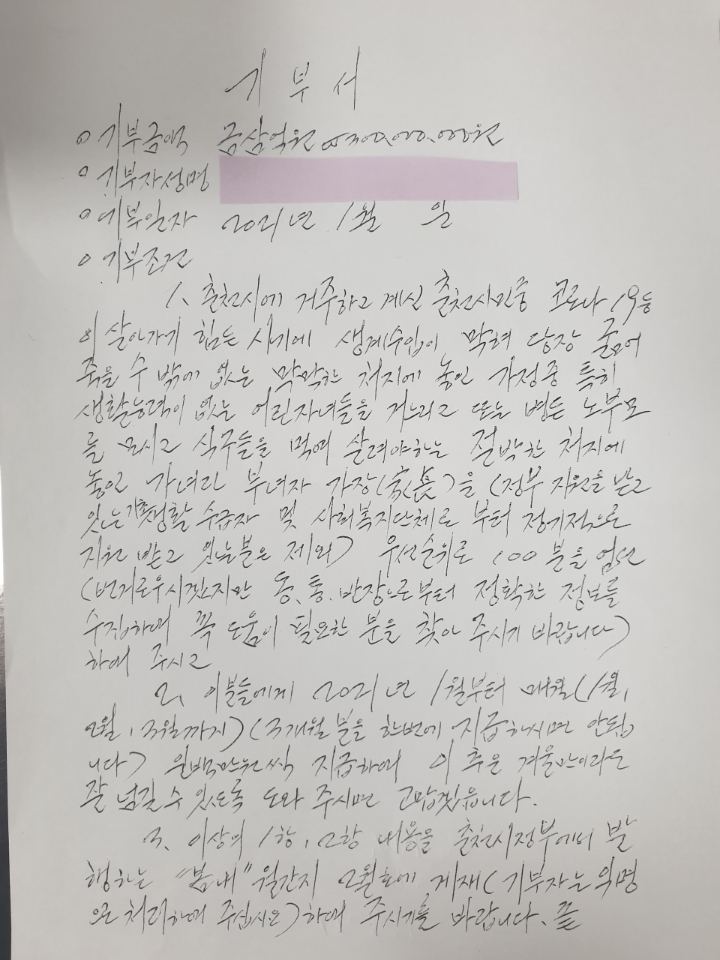 기부서
o 기부금액 금삼억원 ₩300,000,000원
o 기부자성명
o 기부일자 2021년 1월 일
o 기부조건
1. 춘천시에 거주하고 계신 춘천시민중 코로나 19등
이 살아가기 힘든 시기에 생계수입이 막혀 당장 굶어
죽을 수 밖에 없는 막막한 처지에 놓인 가정중 특히
생활능력이 없는 어린자녀들을 거느리고 또는 병든 노부모
를 모시고 식구들을 먹여 살려야하는 절박한 처지에
놓인 가녀린 부녀자 가장(家長)을 (정부 지원을 받고
있는 기초생활 수급자 및 사회복지단체로 부터 정기적으로
지원 받고 있는분은 제외) 우선순위로 100분을 엄선
(번거로우시겠지만 동, 통, 반장으로부터 정확한 정보를
수집하여 꼭 도움이 필요한 분을 찾아 주시기 바랍니다)
하여 주시고
2, 이분들에게 2021년 1월부터 매월(1월,
2월, 3월까지) (3개월 분을 한번에 지급하시면 안됩
니다) 일백만원씩 지급하여 이 추운 겨울만이라도
잘 넘길 수 있도록 도와 주시면 고맙겠읍니다.
3, 이상의 1항, 2항 내용을 춘천시정부에서 발
행하는 "봄내" 월간지 2월호에 게재(기부자는 익명
으로 처리하여 주십시요)하여 주시기를 바랍니다. 끝